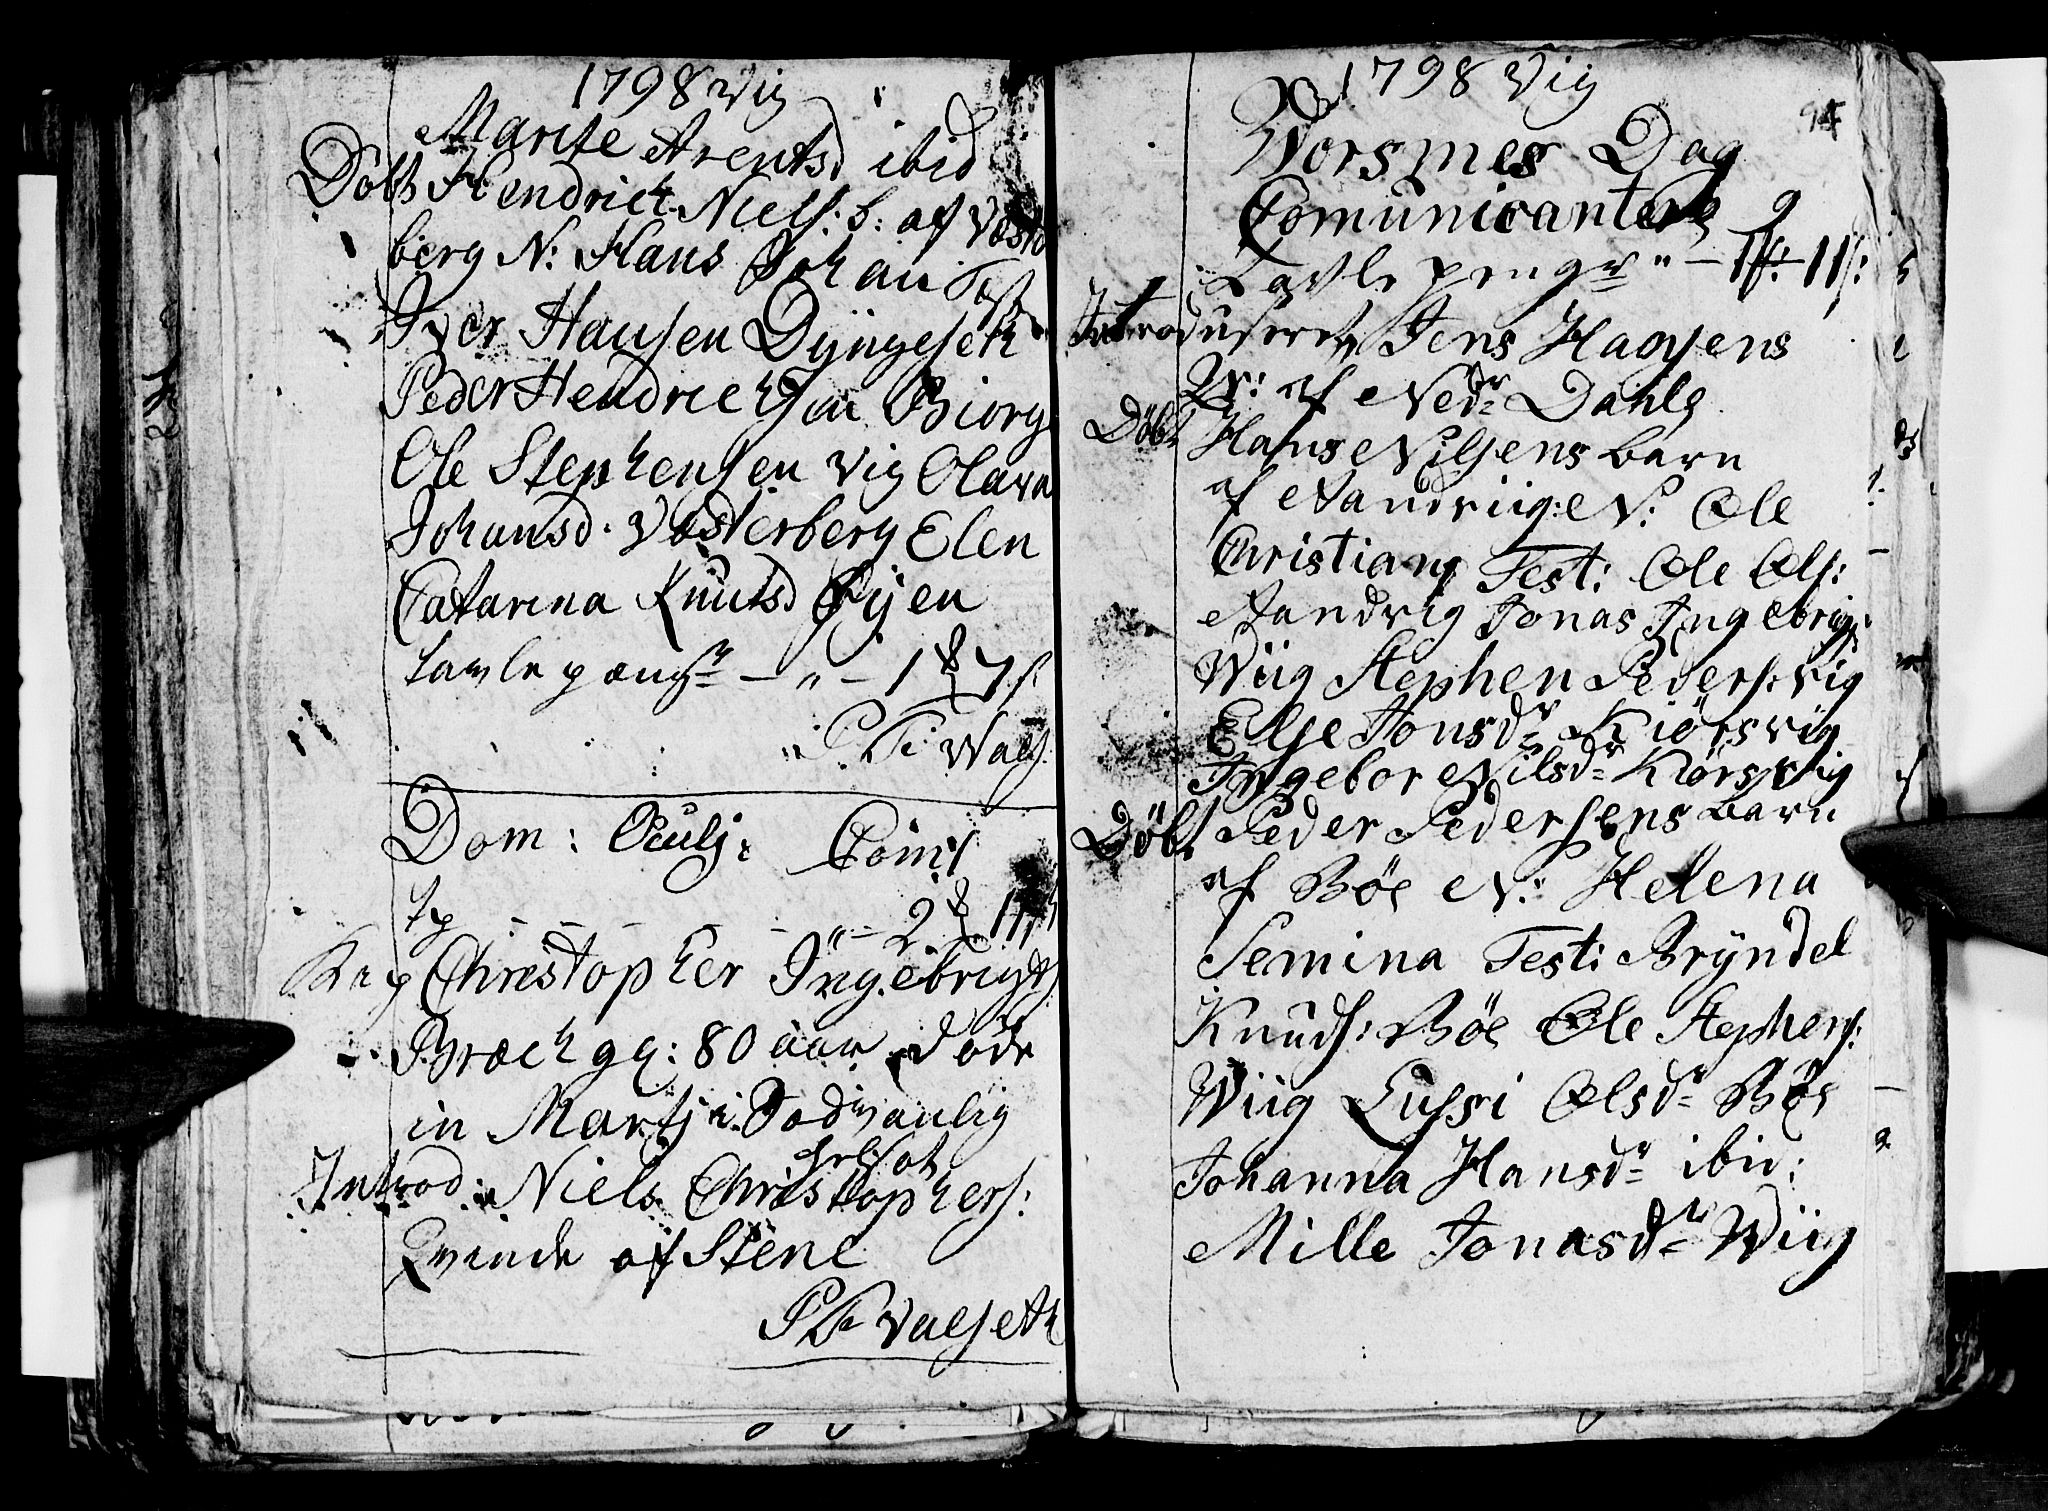 1798 Vig
Marite Arentsd ibid
Döbt Hendrich Niels: b: af Væster
berg N: Hans Johan Test
Iver Hansen Dyngeseth
Peder Hendrichsen Biörge
Ole Stephensen Vig Olava
Johansd. Væsterberg Elen
Catarina Knutsd Öyen
tavle pæng - " - 1 7 s
P. F. Vals
Dom: Oculj: Com:
tp - - " - 2 11 s
Christopher Ingebrigts
Bræch g: 80 aar döde
in Martj Dödvanlig
Introd: Niels Christophers:
Qvinde af Stene
P F Valseth
1798 Vig
94
Worsmes Dag
Comunicantere 9
Tavle penge " - 11 s:
Introduseret Jens Hagens
K: af Nedr Dahle
Döbt Hans Nilsens barn
af Aandviig: N: Ole
Christian Test: Ole Ols:
Aandvig Jonas Ingebrig:
Wiig Stephen Peders: Vig
Else Jonsdr Kiörsvig
Ingebor Nilsdr Kiörsvig
Döbt Peder Pedersens barn
af Böe N: Helena
Semina Test: Bryndel
Knuds: Böe Ole Stephens:
Wiig Lussi Olsdr Böe
Johanna Hansdr ibid:
Mille Jonasdr Wiig